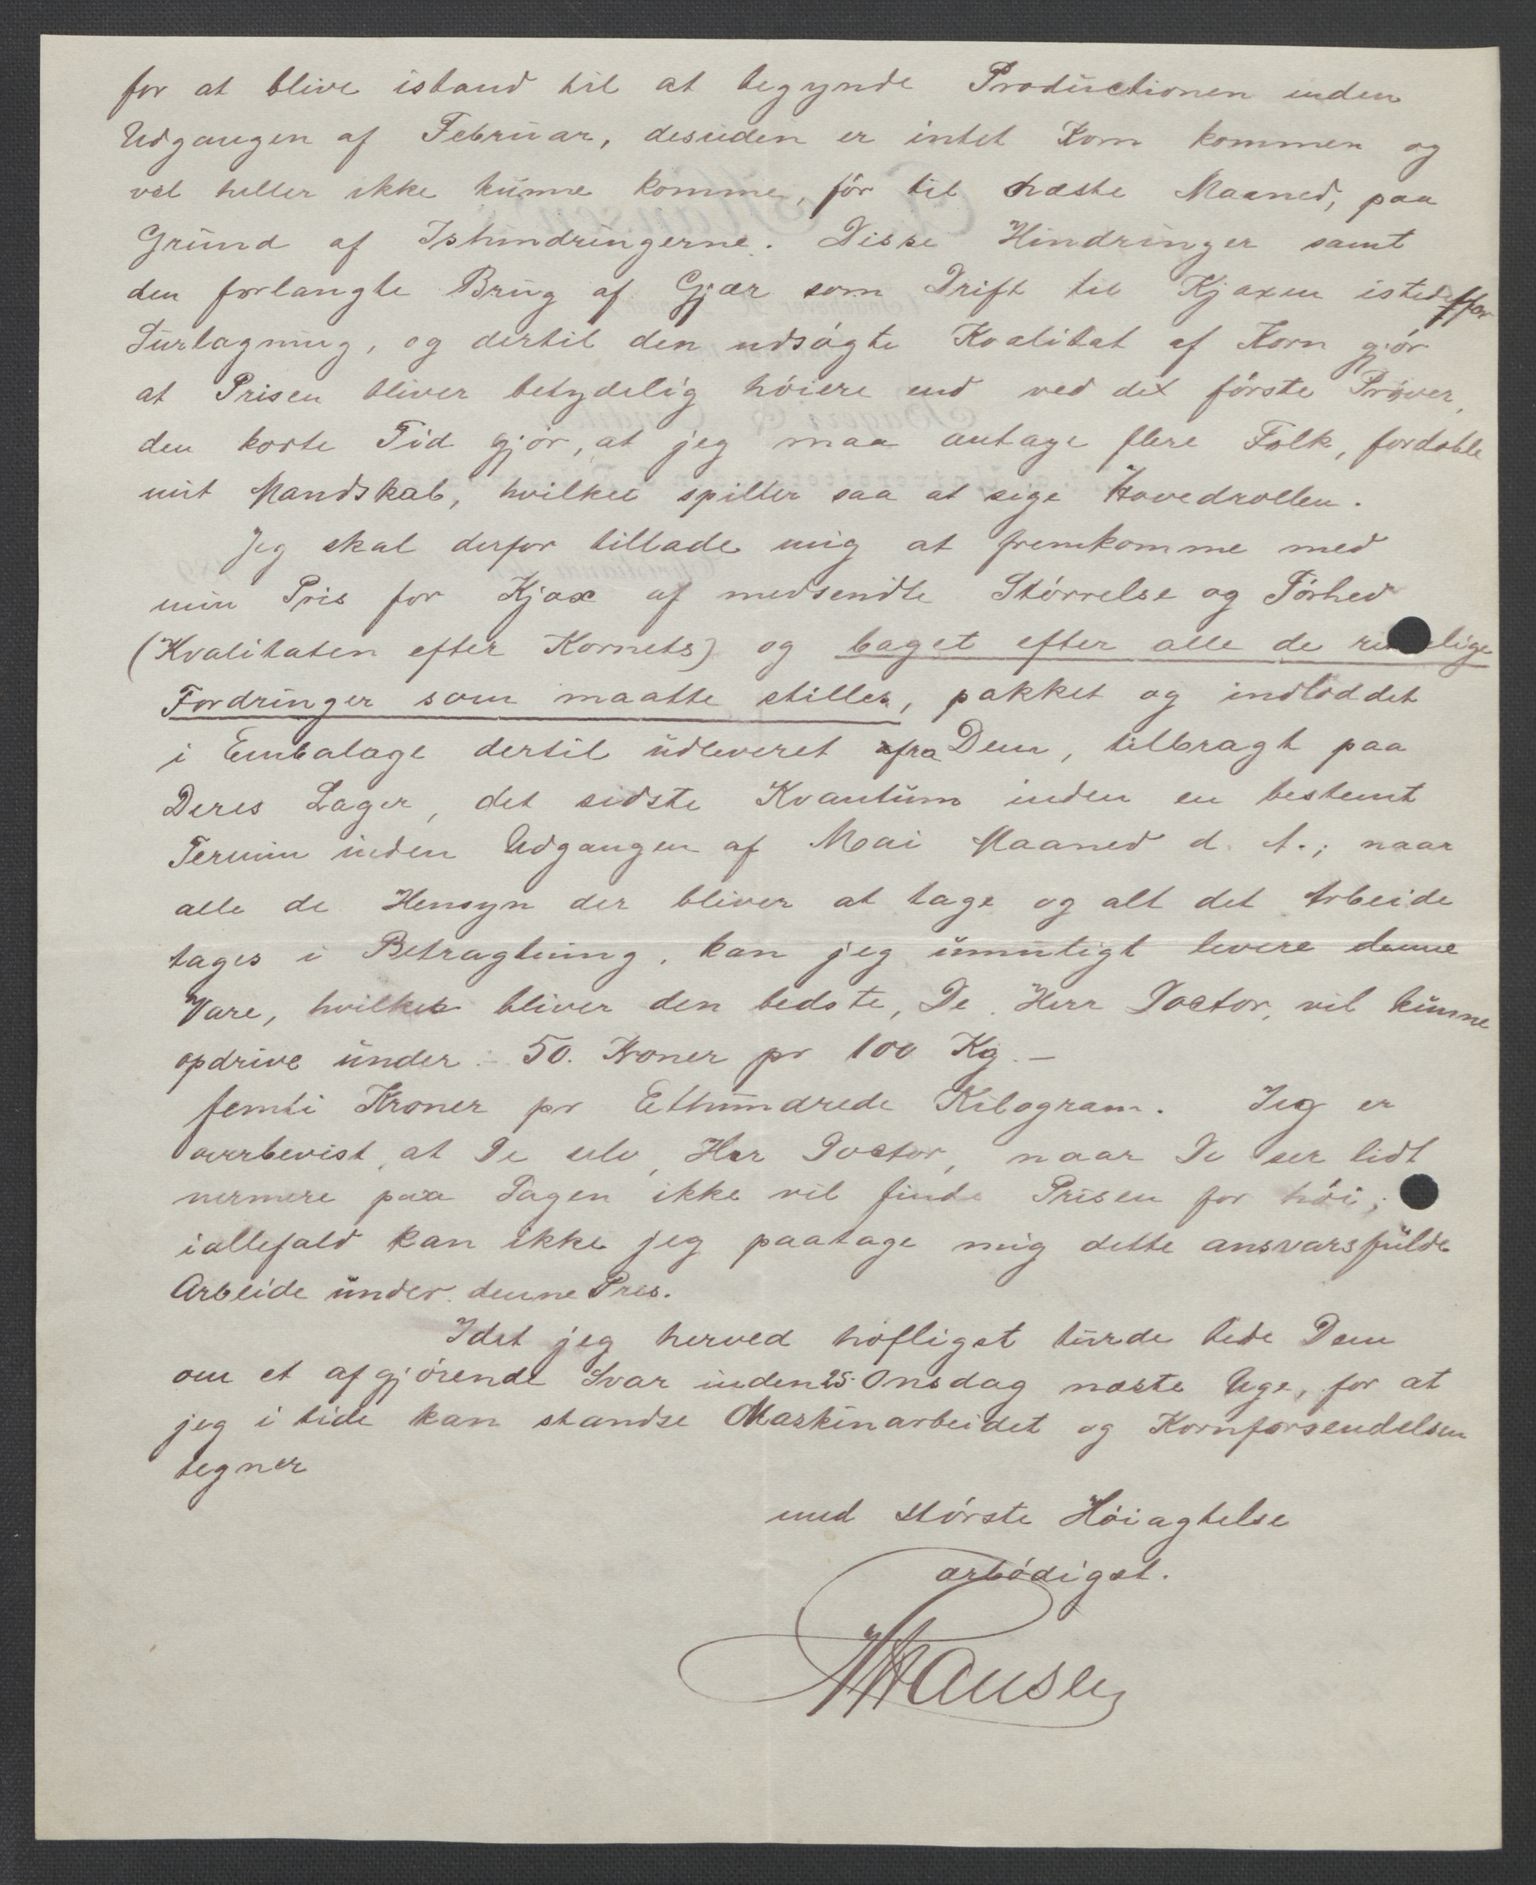 for at blive istand til at begynde Productionen inden
Udgangen af Februar, desuden er intet Korn kommen og
vel heller ikke kunne komme, før til næste Maaned, paa
Grund af Ishindringerne. Disse Hindringer samt
den forlangte Brug af Gjær som Drift til Kjaxen istedetfor
Surlagning, og dertil den udsøgte Kvalitat af Korn gjør
at Prisen bliver betydelig høiere end ved det første Prøver,
den korte Tid gjør, at jeg maa antage flere Folk, fordoble
mit Mandskab, hvilket spiller saa at sige Hovedrollen.
Jeg skal derfor tillade mig at fremkomme med
min Pris for Kjax af medsendte Størrelse og Tørhed
(Kvalitaten efter Kornets) og baget efter alle de rimelige
Fordringer som maatte stilles, pakket og indloddet
i Embalage dertil udleveret fra Dem, tilbragt paa
Deres Lager, det sidste Kvantum inden en bestemt
Termin inden Udgangen af Mai Maaned d. A.; naar
alle de Hensyn der bliver at tage og alt det Arbeide
tages i Betragtning, kan jeg umuligt levere denne
Vare, hvilket bliver den bedste, De, Herr Doctor, vil kunne
opdrive under 50. Kroner pr 100 Kg. —
femti Kroner pr Ethundrede Kilogram. Jeg er
overbevist, at De selv, Herr Doctor, naar De ser lidt
nermere paa Sagen ikke vil finde Prisen for høi;
iallefald kan ikke jeg paatage mig dette ansvarsfulde
Arbeide under denne Pris.
Idet jeg herved høfligst turde bede Dem
om et afgjørende Svar inden 25. Onsdag næste Uge, for at
jeg i tide kan standse Maskinarbeidet og Kornforsendelsen
tegner
med største Høiagtelse
ærbødigst.
Hansen